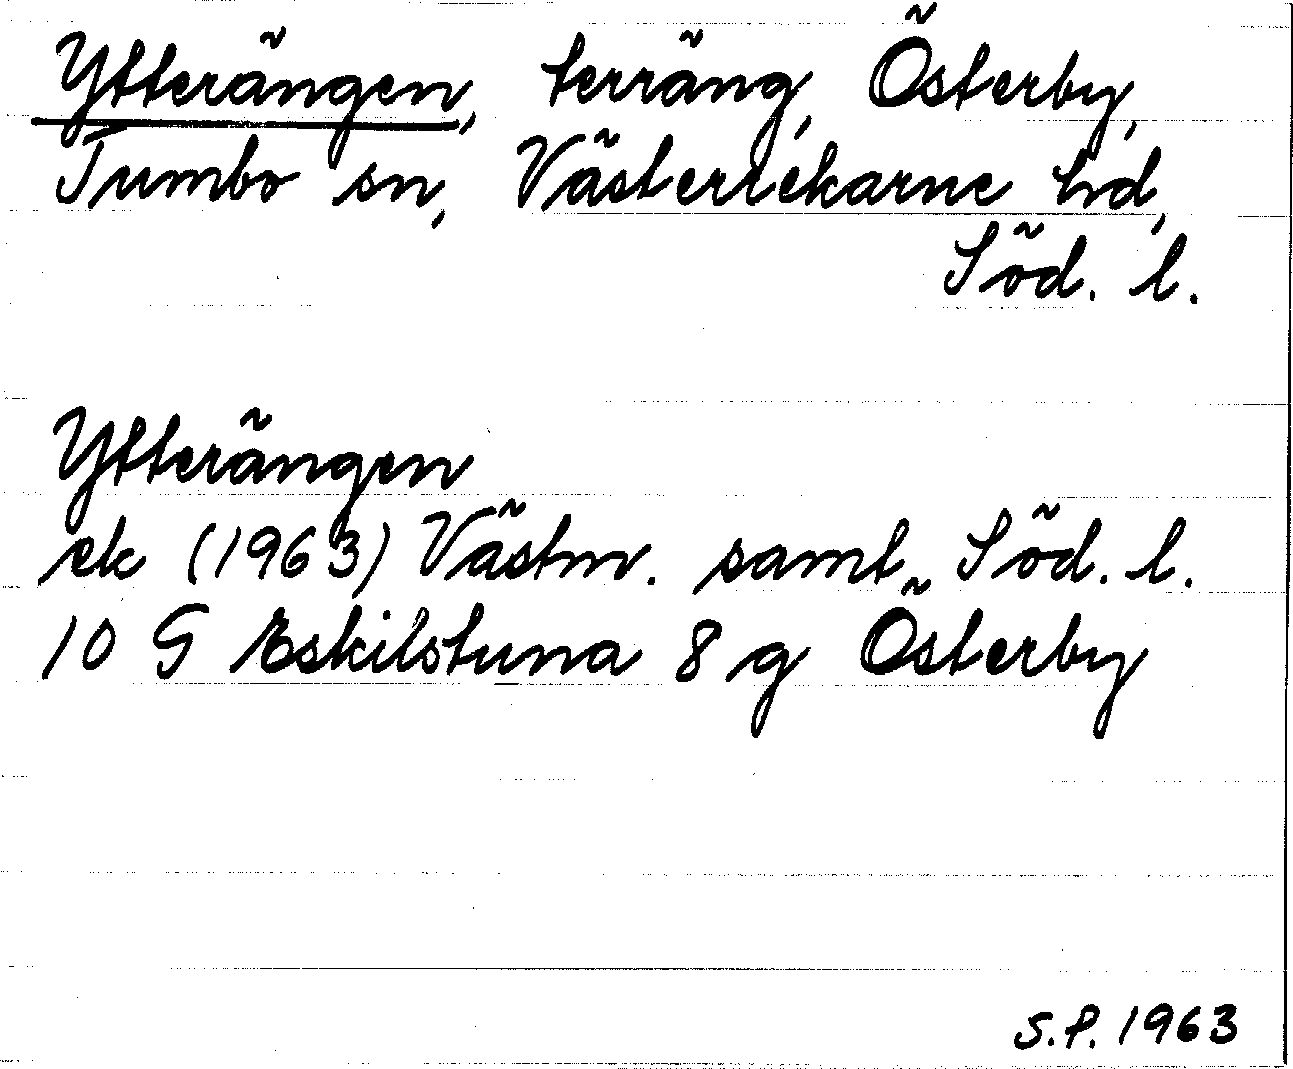 Ytterängen, terräng, Österby,
Tumbo sn, Västerrekarne hd,
Söd. l.
Ytterängen
ek (1963) Västm. samt Söd. l.
10 G Eskilstuna 8 g Österby
S.P. 1963